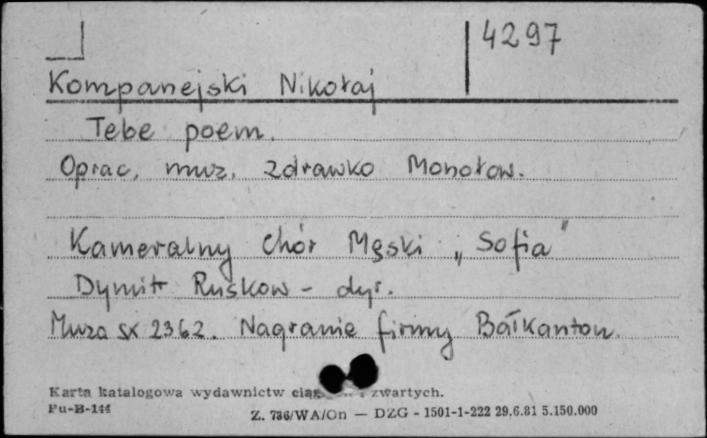 4297
Kompanejski Nikołaj
Tebe poem.
Oprac. muz. Zdrawko Monołow.
Kameralny Chór Męski „Sofia"
Dymitr Ruskow - dyr.
Muza sx 2362. Nagranie firmy Bałkanton.
Karta katalogowa wydawnictw zwartych.
Pu-B-144
Z. 736/WA/On — DZG - 1501-1-222 29.6.81 5.150.000